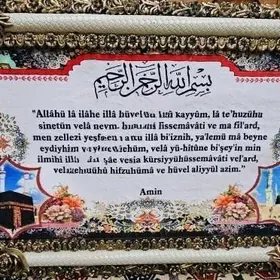 بسم الله الرحمن الرحيم
"Allâhü lâ ilâhe illâ hüvel kayyûm, lâ te'huzühu
sinetün velâ nevm, fissemâvâti ve ma fil'ard,
men zellezi bi'iznih, ya'lemü mâ beyne
eydiyhim velâ yü-hîtûne bi'şey'in min
ilmihî illâ şâe vesia kürsiyyühüssemâvâti vel'ard,
hıfzuhümâ ve hüvel aliyyül azim."
Amin